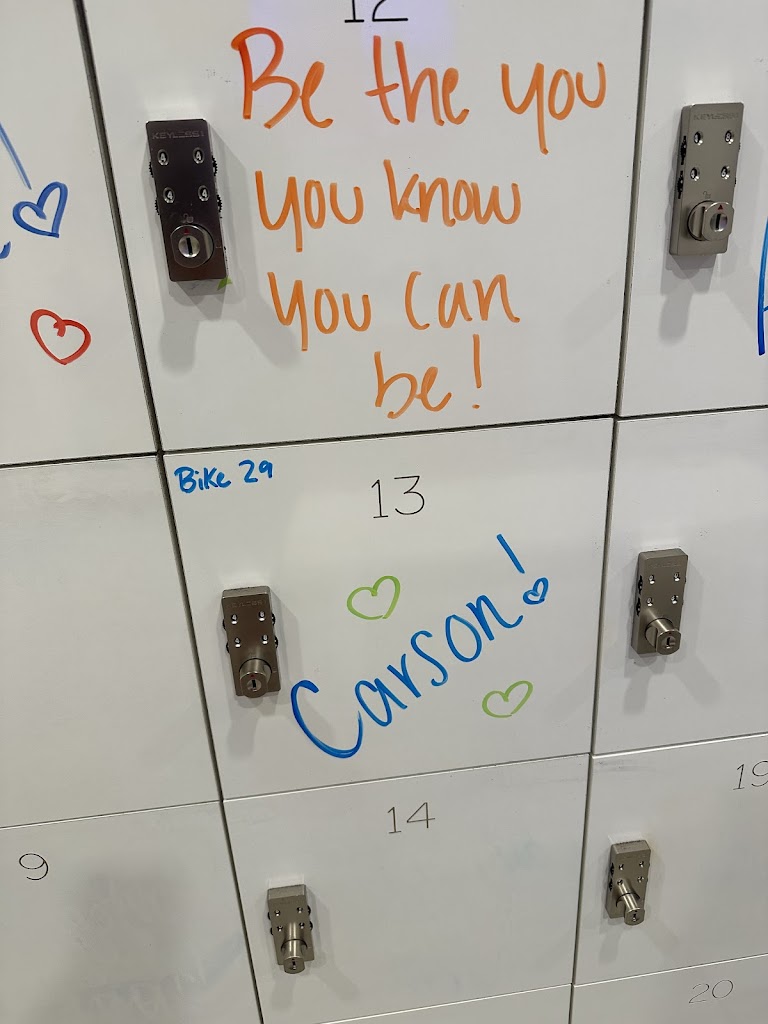 12
Be the you
you know
you can
be!
KEYLESS1
4 4
4 4
Bike 29
13
Carson!
14
19
9
20